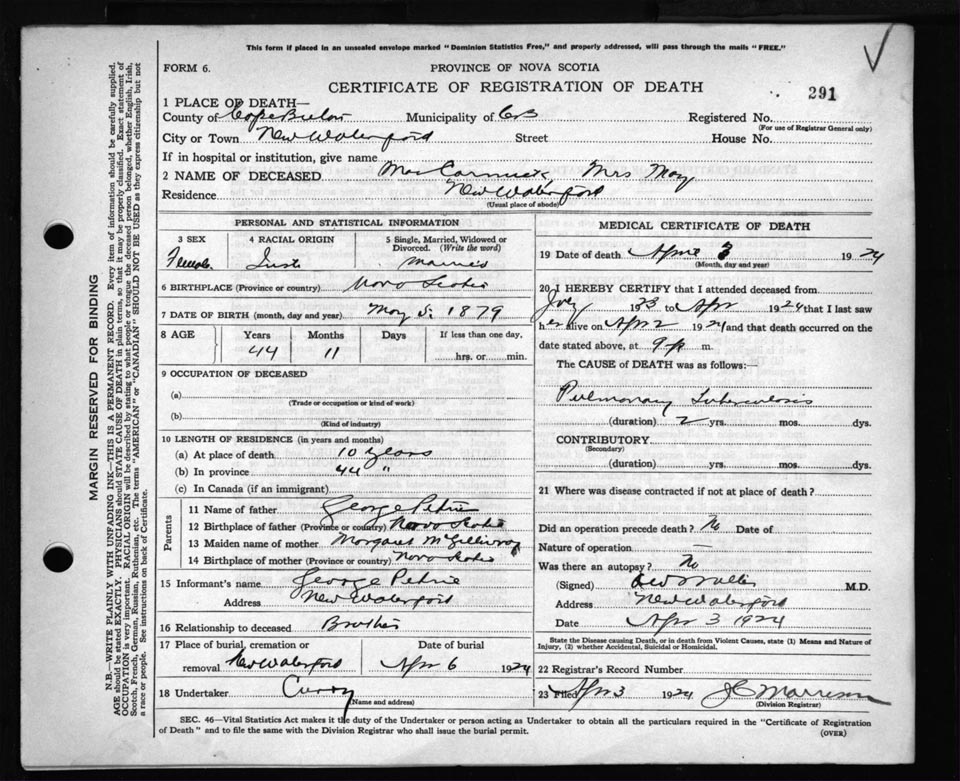 This form if placed in an unsealed envelope marked "Dominion Statistics Free," and properly addressed, will pass through the mails "FREE."
FORM 6. PROVINCE OF NOVA SCOTIA
CERTIFICATE OF REGISTRATION OF DEATH
291
1 PLACE OF DEATH—
County of Cape Breton Municipality of CB Registered No.
(For use of Registrar General only)
City or Town New Waterford Street House No.
If in hospital or institution, give name
2 NAME OF DECEASED MacCormick, Mrs May
Residence New Waterford
(Usual place of abode)
PERSONAL AND STATISTICAL INFORMATION
3 SEX 4 RACIAL ORIGIN 5 Single, Married, Widowed or Divorced. (Write the word)
Female Married
6 BIRTHPLACE (Province or country) Nova Scotia
7 DATE OF BIRTH (month, day and year) May 5, 1879
8 AGE Years Months Days If less than one day,
44 11 hrs. or min.
9 OCCUPATION OF DECEASED
(a)
(Trade or occupation or kind of work)
(b)
(Kind of industry)
10 LENGTH OF RESIDENCE (in years and months)
(a) At place of death 10 years
(b) In province 44 "
(c) In Canada (if an immigrant)
Parents
11 Name of father George Petrie
12 Birthplace of father (Province or country) Nova Scotia
13 Maiden name of mother Margaret McGillivray
14 Birthplace of mother (Province or country) Nova Scotia
15 Informant's name George Petrie
Address New Waterford
16 Relationship to deceased Brother
17 Place of burial, cremation or Date of burial
removal New Waterford Apr 6 1924
18 Undertaker Curry
(Name and address)
MEDICAL CERTIFICATE OF DEATH
19 Date of death April 3 1924
(Month, day and year)
20 I HEREBY CERTIFY that I attended deceased from
1923 to Apr 1924 that I last saw
her alive on Apr 2 1924 and that death occurred on
date stated above, at 9 p m.
The CAUSE of DEATH was as follows:—
Pulmonary Tuberculosis
(duration) 2 yrs. mos. dys.
CONTRIBUTORY
(Secondary)
(duration) yrs. mos. dys.
21 Where was disease contracted if not at place of death?
Did an operation precede death? No Date of
Nature of operation —
Was there an autopsy? No
(Signed) M.D.
Address New Waterford
Date Apr 3 1924
State the Disease causing Death, or in death from Violent Causes, state (1) Means and Nature of
Injury, (2) whether Accidental, Suicidal or Homicidal.
22 Registrar's Record Number
23 Filed Apr 3 1924 J C Morrison
(Division Registrar)
SEC. 46—Vital Statistics Act makes it the duty of the Undertaker or person acting as Undertaker to obtain all the particulars required in the "Certificate of Registration
of Death" and to file the same with the Division Registrar who shall issue the burial permit.
(OVER)
MARGIN RESERVED FOR BINDING
N.B.—WRITE PLAINLY WITH UNFADING INK—THIS IS A PERMANENT RECORD. Every item of information should be carefully supplied.
AGE should be stated EXACTLY. PHYSICIANS should STATE CAUSE OF DEATH in plain terms, so that it may be properly classified. Exact statement of
OCCUPATION is very important. RACIAL ORIGIN will be described by stating to what people or tongue the deceased person belonged, whether English, Irish,
Scotch, French, German, Russian, Ruthenian, etc. The terms "AMERICAN" or "CANADIAN" SHOULD NOT BE USED as they express citizenship but not
a race or people. See instructions on back of Certificate.